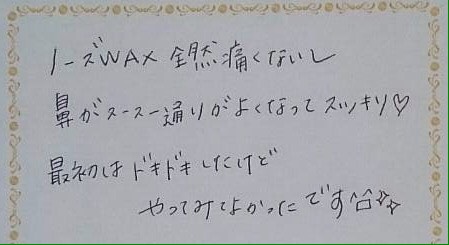 ノーズWAX 全然痛くないし
鼻がスースー通りがよくなってスッキリ♡
最初はドキドキしたけど
やってみてよかったです^^☆☆